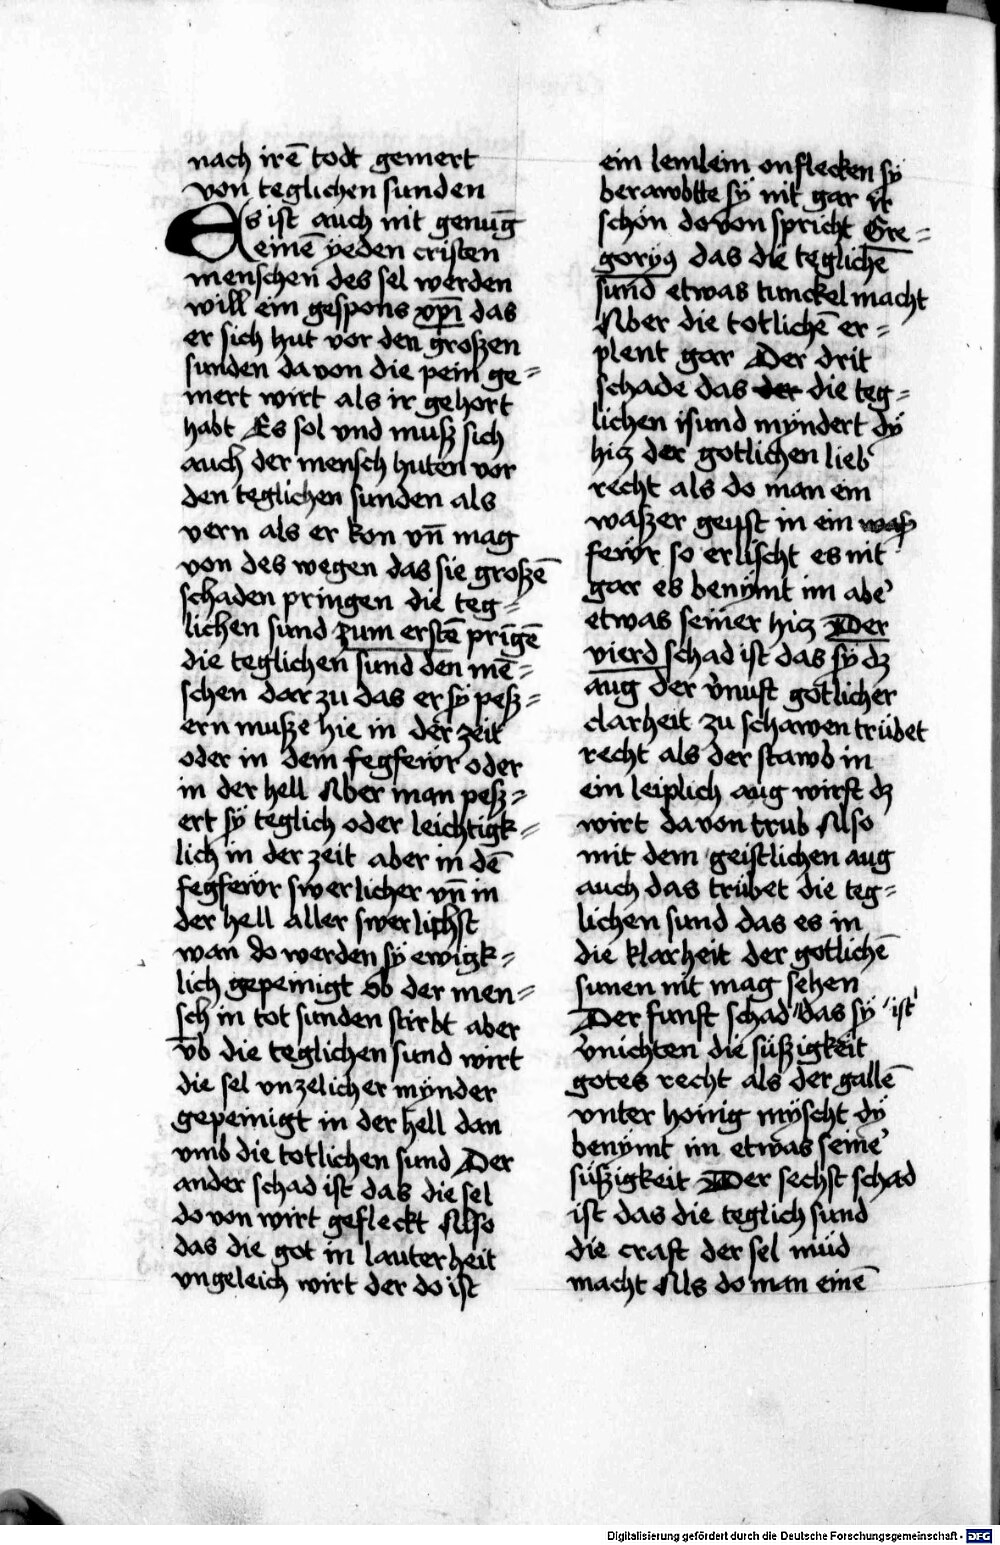 nach irē todt gemert
von teglichen sunden
Es ist auch nit genug
einē yeden cristen
menschen des sel werden
will ein gespons xp̄i das
er sich hut vor den großen
sunden da von die pein ge=
mert wirt als ir gehort
habt Es sol vnd muß sich
auch der mensch huten vor
den teglichen sunden als
vern als er kon vn̄ mag
von des wegen das sie großē
schaden pringen die teg=
lichen sund zum erstē prīgē
die teglichen sund den mē=
schen dar zu das er sy peß=
ern muße hie in der zeit
oder in dem fegfewr oder
in der hell Aber man peß=
ert sy teglich oder leichtigk=
lich in der zeit aber in dē
fegfewr swerlicher vn̄ in
der hell aller swerlichst
wan do werden sy ewigk=
lich gepeinigt Ob der men=
sch in tot sunden stirbt aber
vb die teglichen sund wirt
die sel vnzelicher mynder
gepeinigt in der hell dan
vmb die totlichen sund Der
ander schad ist das die sel
do von wirt gefleckt Also
das die got in lauterheit
vngeleich wirt der do ist
ein lemlein on flecken sy
berawbtte sy nit gar ir
schön do von spricht Gre=
gorius das die teglichē
sund etwas tunckel macht
Aber die totlichē er=
plent gar Der drit
schade das der die teg=
lichen isund myndert dy
hicz der gotlichen lieb
recht als do man ein
waßer geust in ein waß
fewr so erlischt es nit
gar es benymt im abe'
etwas seiner hicz Der
vierd schad ist das sy dz
aug der v'nuft gotlicher
clarheit zu schawen trübet
recht als der stawb in
ein leiplich aug wirft dz
wirt davon trub Also
mit dem geistlichen aug
auch das trübet die teg=
lichen sund das es in
die klarheit der gotlichē
sunen nit mag sehen
Der funft schad das sy ist
v'nichten die süßigkeit
gotes recht als der gallē
vnter honig myscht dy
benymt im etwas seine'
süßigkeit Der sechst schad
ist das die teglich sund
die craft der sel müd
macht Als do man einē
Digitalisierung gefördert durch die Deutsche Forschungsgemeinschaft - DFG